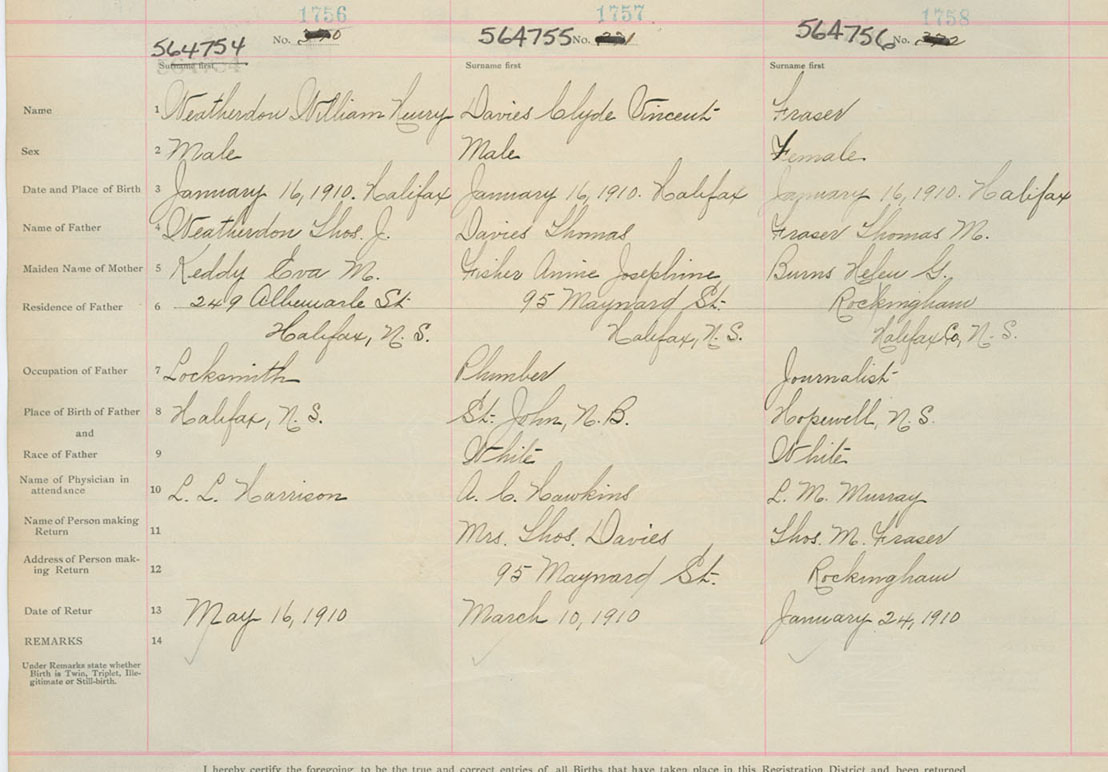 1756 1757 1758
564754 No. 564755 No. 564756 No.
Surname first Surname first Surname first
Name 1 Weatherdon William Henry Davies Clyde Vincent Fraser
Sex 2 Male Male Female
Date and Place of Birth 3 January 16, 1910. Halifax January 16, 1910. Halifax January 16, 1910. Halifax
Name of Father 4 Weatherdon Thos. J. Davies Thomas Fraser Thomas M.
Maiden Name of Mother 5 Keddy Eva M. Fisher Annie Josephine Burns Helen G.
Residence of Father 6 249 Albemarle St. 95 Maynard St. Rockingham
Halifax, N. S. Halifax, N. S. Halifax Co, N. S.
Occupation of Father 7 Locksmith Plumber Journalist
Place of Birth of Father 8 Halifax, N. S. St. John, N. B. Hopewell, N. S.
and
Race of Father 9 White White
Name of Physician in attendance 10 L. L. Harrison A. C. Hawkins L. M. Murray
Name of Person making Return 11 Mrs. Thos. Davies Thos. M. Fraser
Address of Person mak-
ing Return 12 95 Maynard St. Rockingham
Date of Retur 13 May 16, 1910 March 10, 1910 January 24, 1910
REMARKS 14
Under Remarks state whether
Birth is Twin, Triplet, Ille-
gitimate or Still-birth.
I hereby certify the foregoing, to be the true and correct entries of all Births that have taken place in this Registration District and been returned